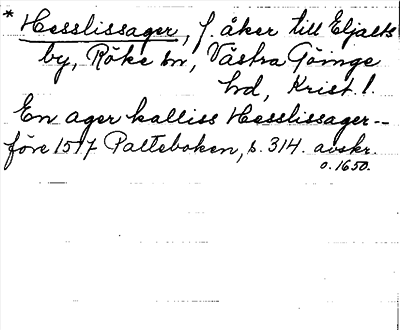 * Hesslissager, f. åker till Eljalts
by, Röke sn, Västra Göinge
hd, Krist. l.
En ager kalliss Hesslissager --
före 1597 Palteboken, s. 314. avskr.
o. 1650.